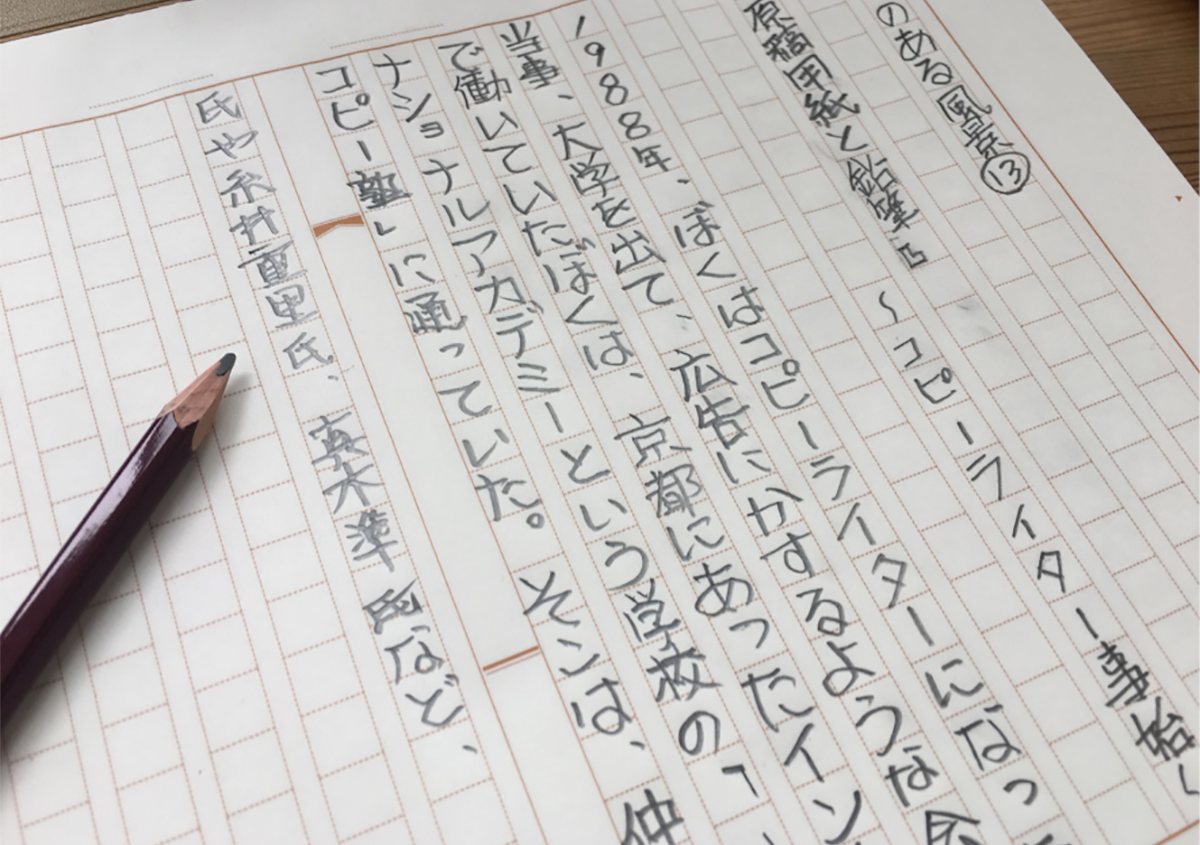 のある風景⑬
原稿用紙と鉛筆B 〜コピーライター事始〜
1988年、ぼくはコピーライターになっ
当事、大学を出て、広告にかするような会
で働いていたぼくは、京都にあったイン
ナショナルアカデミーという学校の「
コピー塾」に通っていた。そこは、仲
氏や糸井重里氏、真木準氏など、